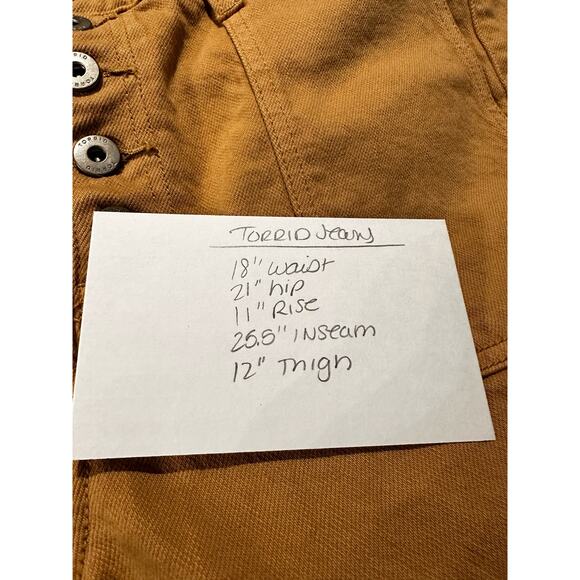 TORRID
TORRID
TORRID
TORRID
TORRID Jeans
18" waist
21" hip
11" Rise
25.5" INseam
12" Thigh